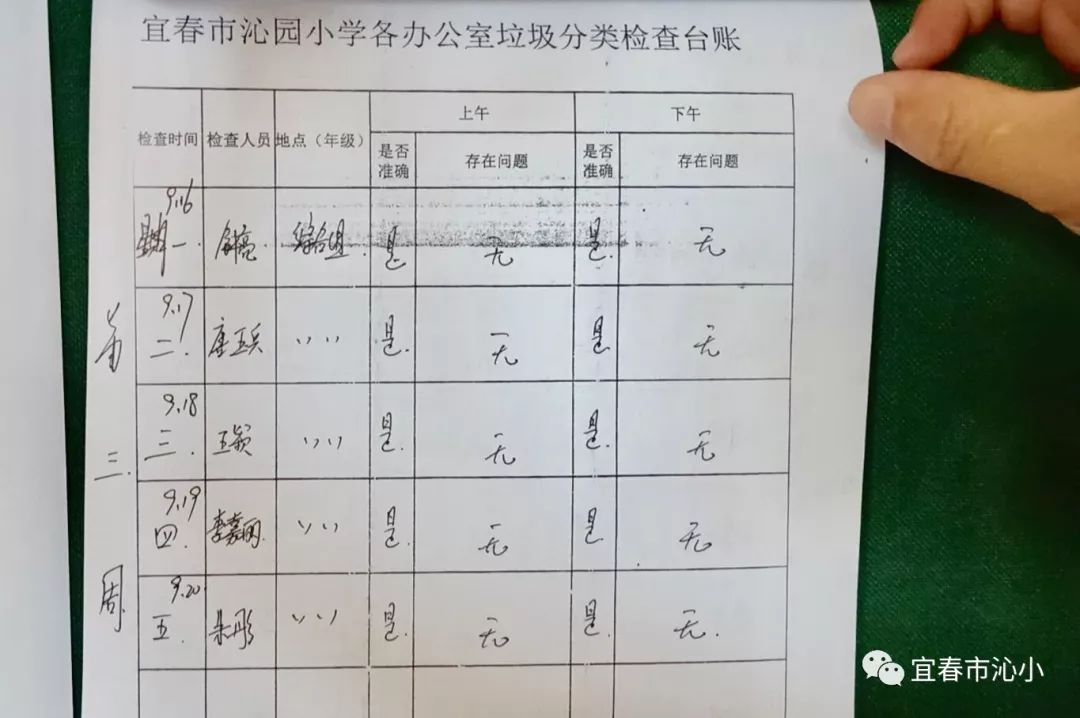 宜春市沁园小学各办公室垃圾分类检查台账
检查时间 检查人员 地点（年级） 上午 下午
是否准确 存在问题 是否准确 存在问题
第三周
9.16 一. 综合组. 是. 无 是. 无
9.17 二. 〃 是. 无 是. 无
9.18 三. 〃 是. 无 是. 无
9.19 四. 李嘉丽. 〃 是. 无 是. 无
9.20 五. 朱彤 〃 是. 无 是. 无.
宜春市沁小